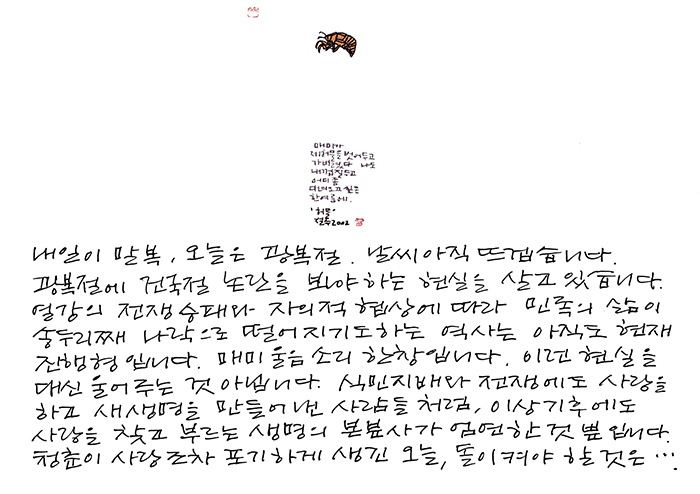 매미가
제 허물을 벗어두고
가버렸다 나도
내껍질두고
어디좀
다녀오고 싶은
한여름에.
'허물'
철수2002
내일이 말복, 오늘은 광복절. 날씨 아직 뜨겁습니다.
광복절에 건국절 논란을 보아야 하는 현실을 살고 있습니다.
열강의 전쟁 승패와 자의적 협상에 따라 민족의 삶이
송두리째 나락으로 떨어지기도 하는 역사는 아직도 현재
진행형입니다. 매미 울음소리 한창입니다. 이런 현실을
대신 울어주는 것 아닙니다. 식민지배와 전쟁에도 사랑을
하고 새생명을 만들어 낸 사람들처럼, 이상기후에도
사랑을 찾고 부르는 생명의 본능사가 엄연한 것 뿐입니다.
청춘이 사랑조차 포기하게 생긴 오늘, 돌이켜야 할 것은 ….